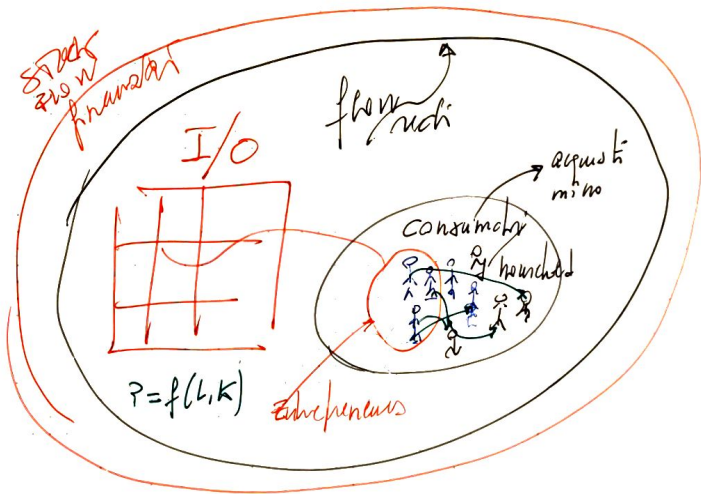 stock
flow
finanziari
flow
reali
I/O
acquisti
micro
consumatori
household
P=f(L,K)
Entrepreneurs